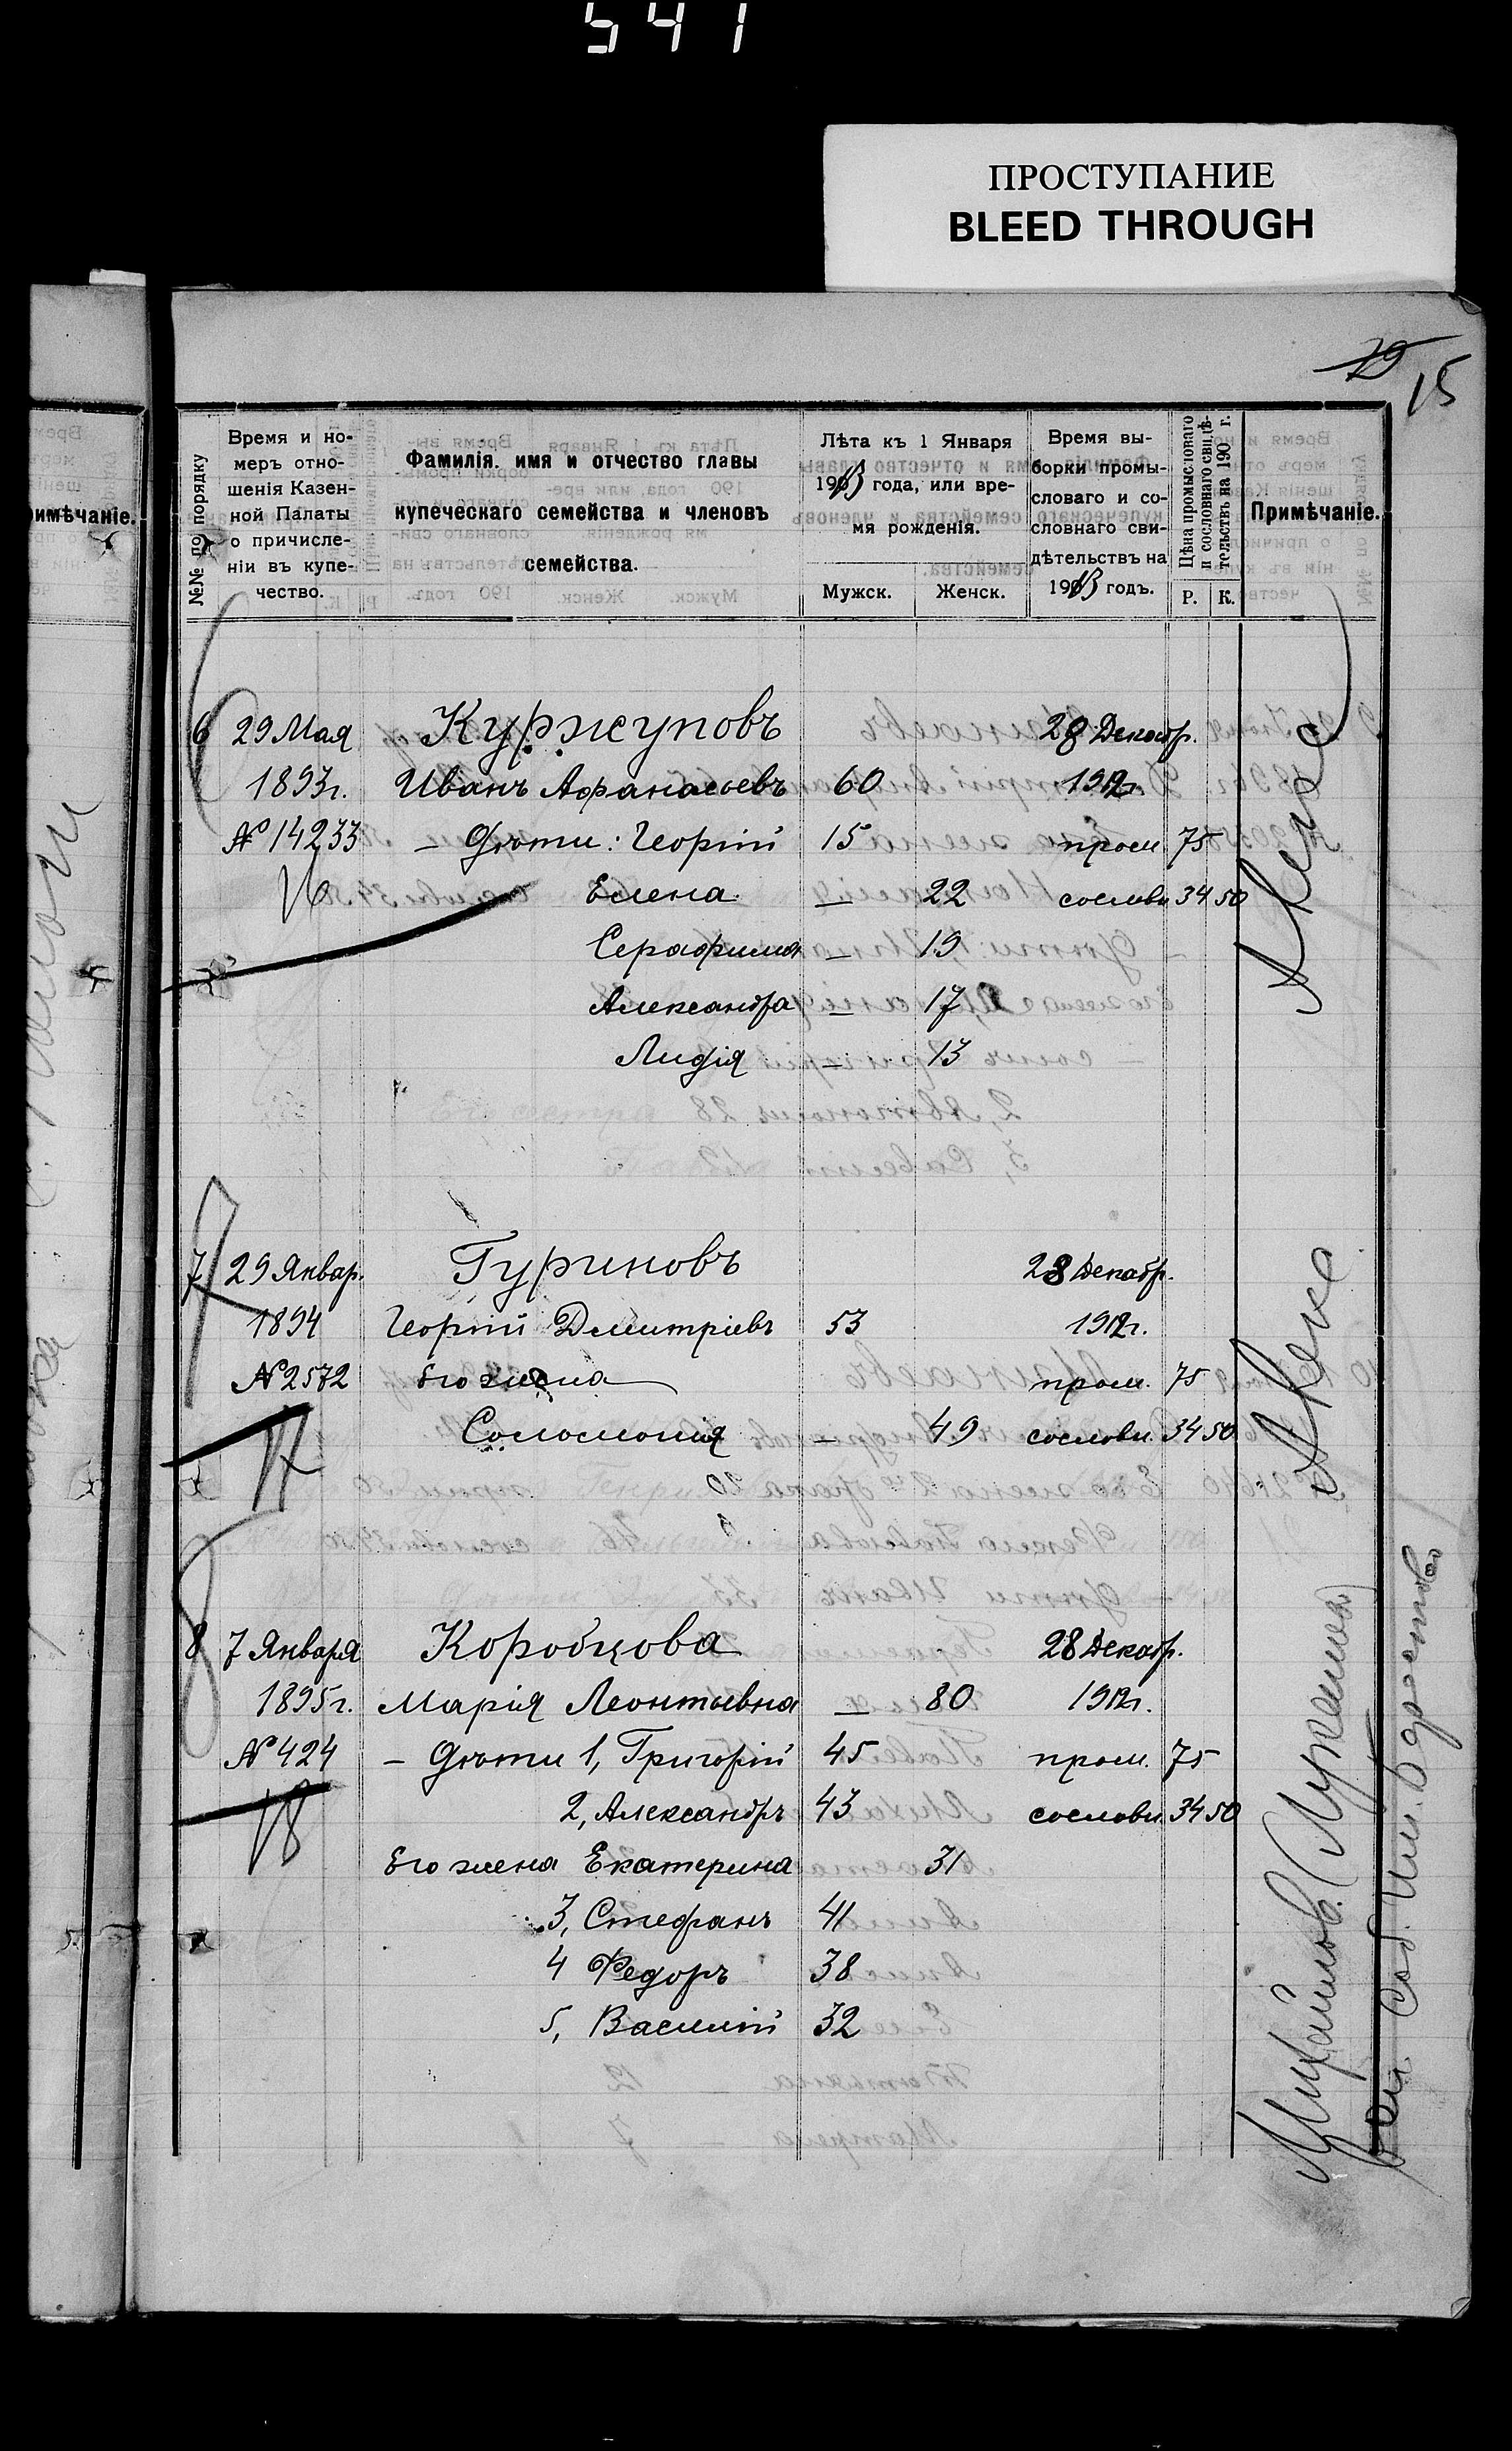 541
ПРОСТУПАНИЕ
BLEED THROUGH
15
№№ по порядку
Время и но-
меръ отно-
шенія Казен-
ной Палаты
о причисле-
ніи въ купе-
чество.
Фамилія. имя и отчество главы
купеческаго семейства и членовъ
семейства.
Лѣта къ 1 Января
1913 года, или вре-
мя рожденія.
Мужск.
Женск.
Время вы-
борки промы-
словаго и со-
словнаго сви-
дѣтельствъ на
1913 годъ.
Цѣна промысловаго
и сословнаго свидѣ-
тельствъ на 190 г.
Р. К.
Примѣчаніе.
имѣчаніе.
6 29 Мая Куржуповъ 28 Декабр.
1893г. Иванъ Афанасьевъ 60 1912г.
№ 14233 – Дѣти: Георгій 15 пром. 75
16 Елена — 22 сословн. 34 50
Серафима — 19
Александра — 17
Лидія — 13
7 29 Январ. Гуриновъ 28 Декабр.
1894 Георгій Дмитріевъ 53 1912г.
№ 2572 Его жена пром. 75
17 Соломонія — 49 сословн. 34 50
8 7 Января Коробцова 28 Декабр.
1895г. Марія Леонтьевна — 80 1912г.
№ 424 – Дѣти 1, Григорій 45 пром. 75
18 2, Александръ 43 сословн. 34 50
Его жена Екатерина 31
3, Стефанъ 41
4 Федоръ 38
5, Василій 32